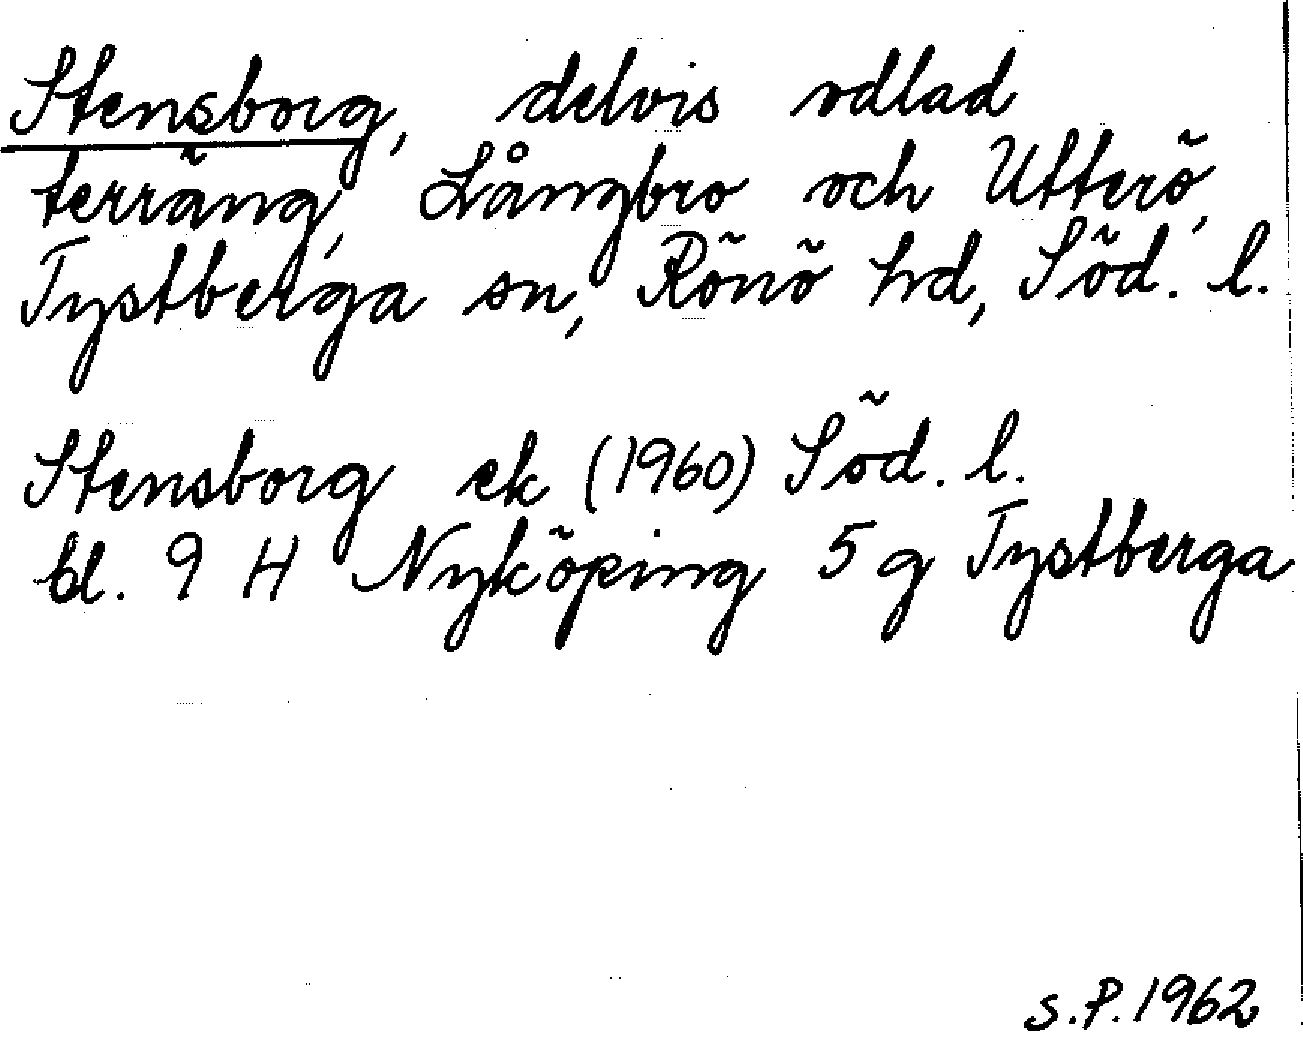 Stensborg, delvis odlad
terräng, Långbro och Utterö,
Tystberga sn, Rönö hd, Söd. l.
Stensborg ek (1960) Söd. l.
bl. 9 H Nyköping 5 g Tystberga
S.P. 1962